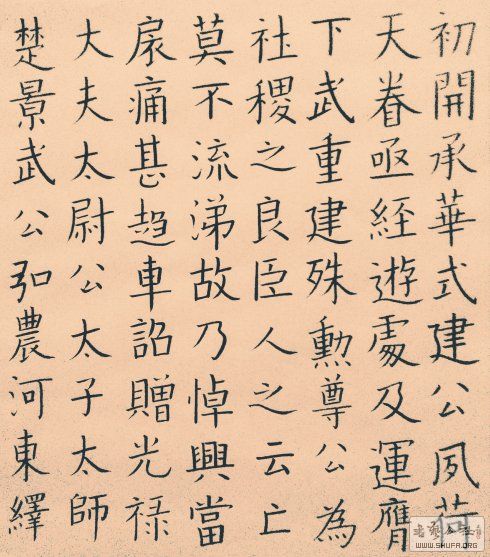 初開承華式建公夙荷
天眷亟經遊處及運膺
下武重建殊勳尊公為
社稷之良臣人之云亡
莫不流涕故乃悼興當
扆痛甚趍車詔贈光禄
大夫太尉公太子太師
楚景武公弘農河東繹
WWW.SHUFA.ORG